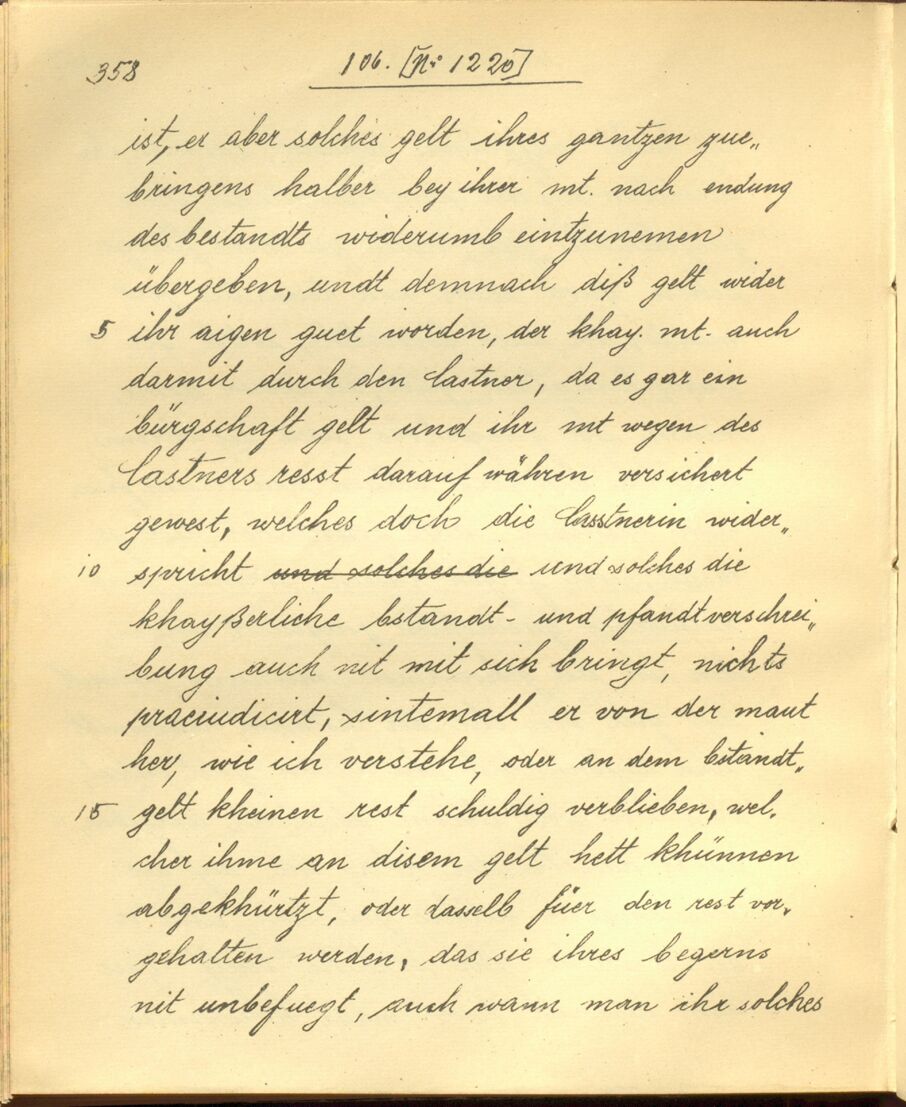 358
106. [No 1220]
ist, er aber solches gelt ihres gantzen zue„
bringens halber bey ihrer mt. nach endung
des bestandts widerumb eintzunemen
übergeben, undt demnach diß gelt wider
5 ihr aigen guet worden, der khay. mt. auch
darmit durch den Castner, da es gar ein
bürgschaft gelt und ihr mt wegen des
Castners resst darauf währen versichert
gewest, welches doch die Casstnerin wider„
10 spricht und solches die und solches die
khayßerliche bstandt- und pfandtverschrei„
bung auch nit mit sich bringt, nichts
praeiudicirt, sintemall er von der maut
her, wie ich verstehe, oder an dem bstandt„
15 gelt kheinen rest schuldig verblieben, wel.
cher ihme an disem gelt hett khünnen
abgekhürtzt, oder dasselb füer den rest vor.
gehalten werden, das sie ihres begerns
nit unbefuegt, auch wann man ihr solches